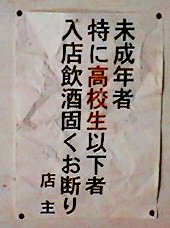 未成年者
特に高校生以下者
入店飲酒固くお断り
店主